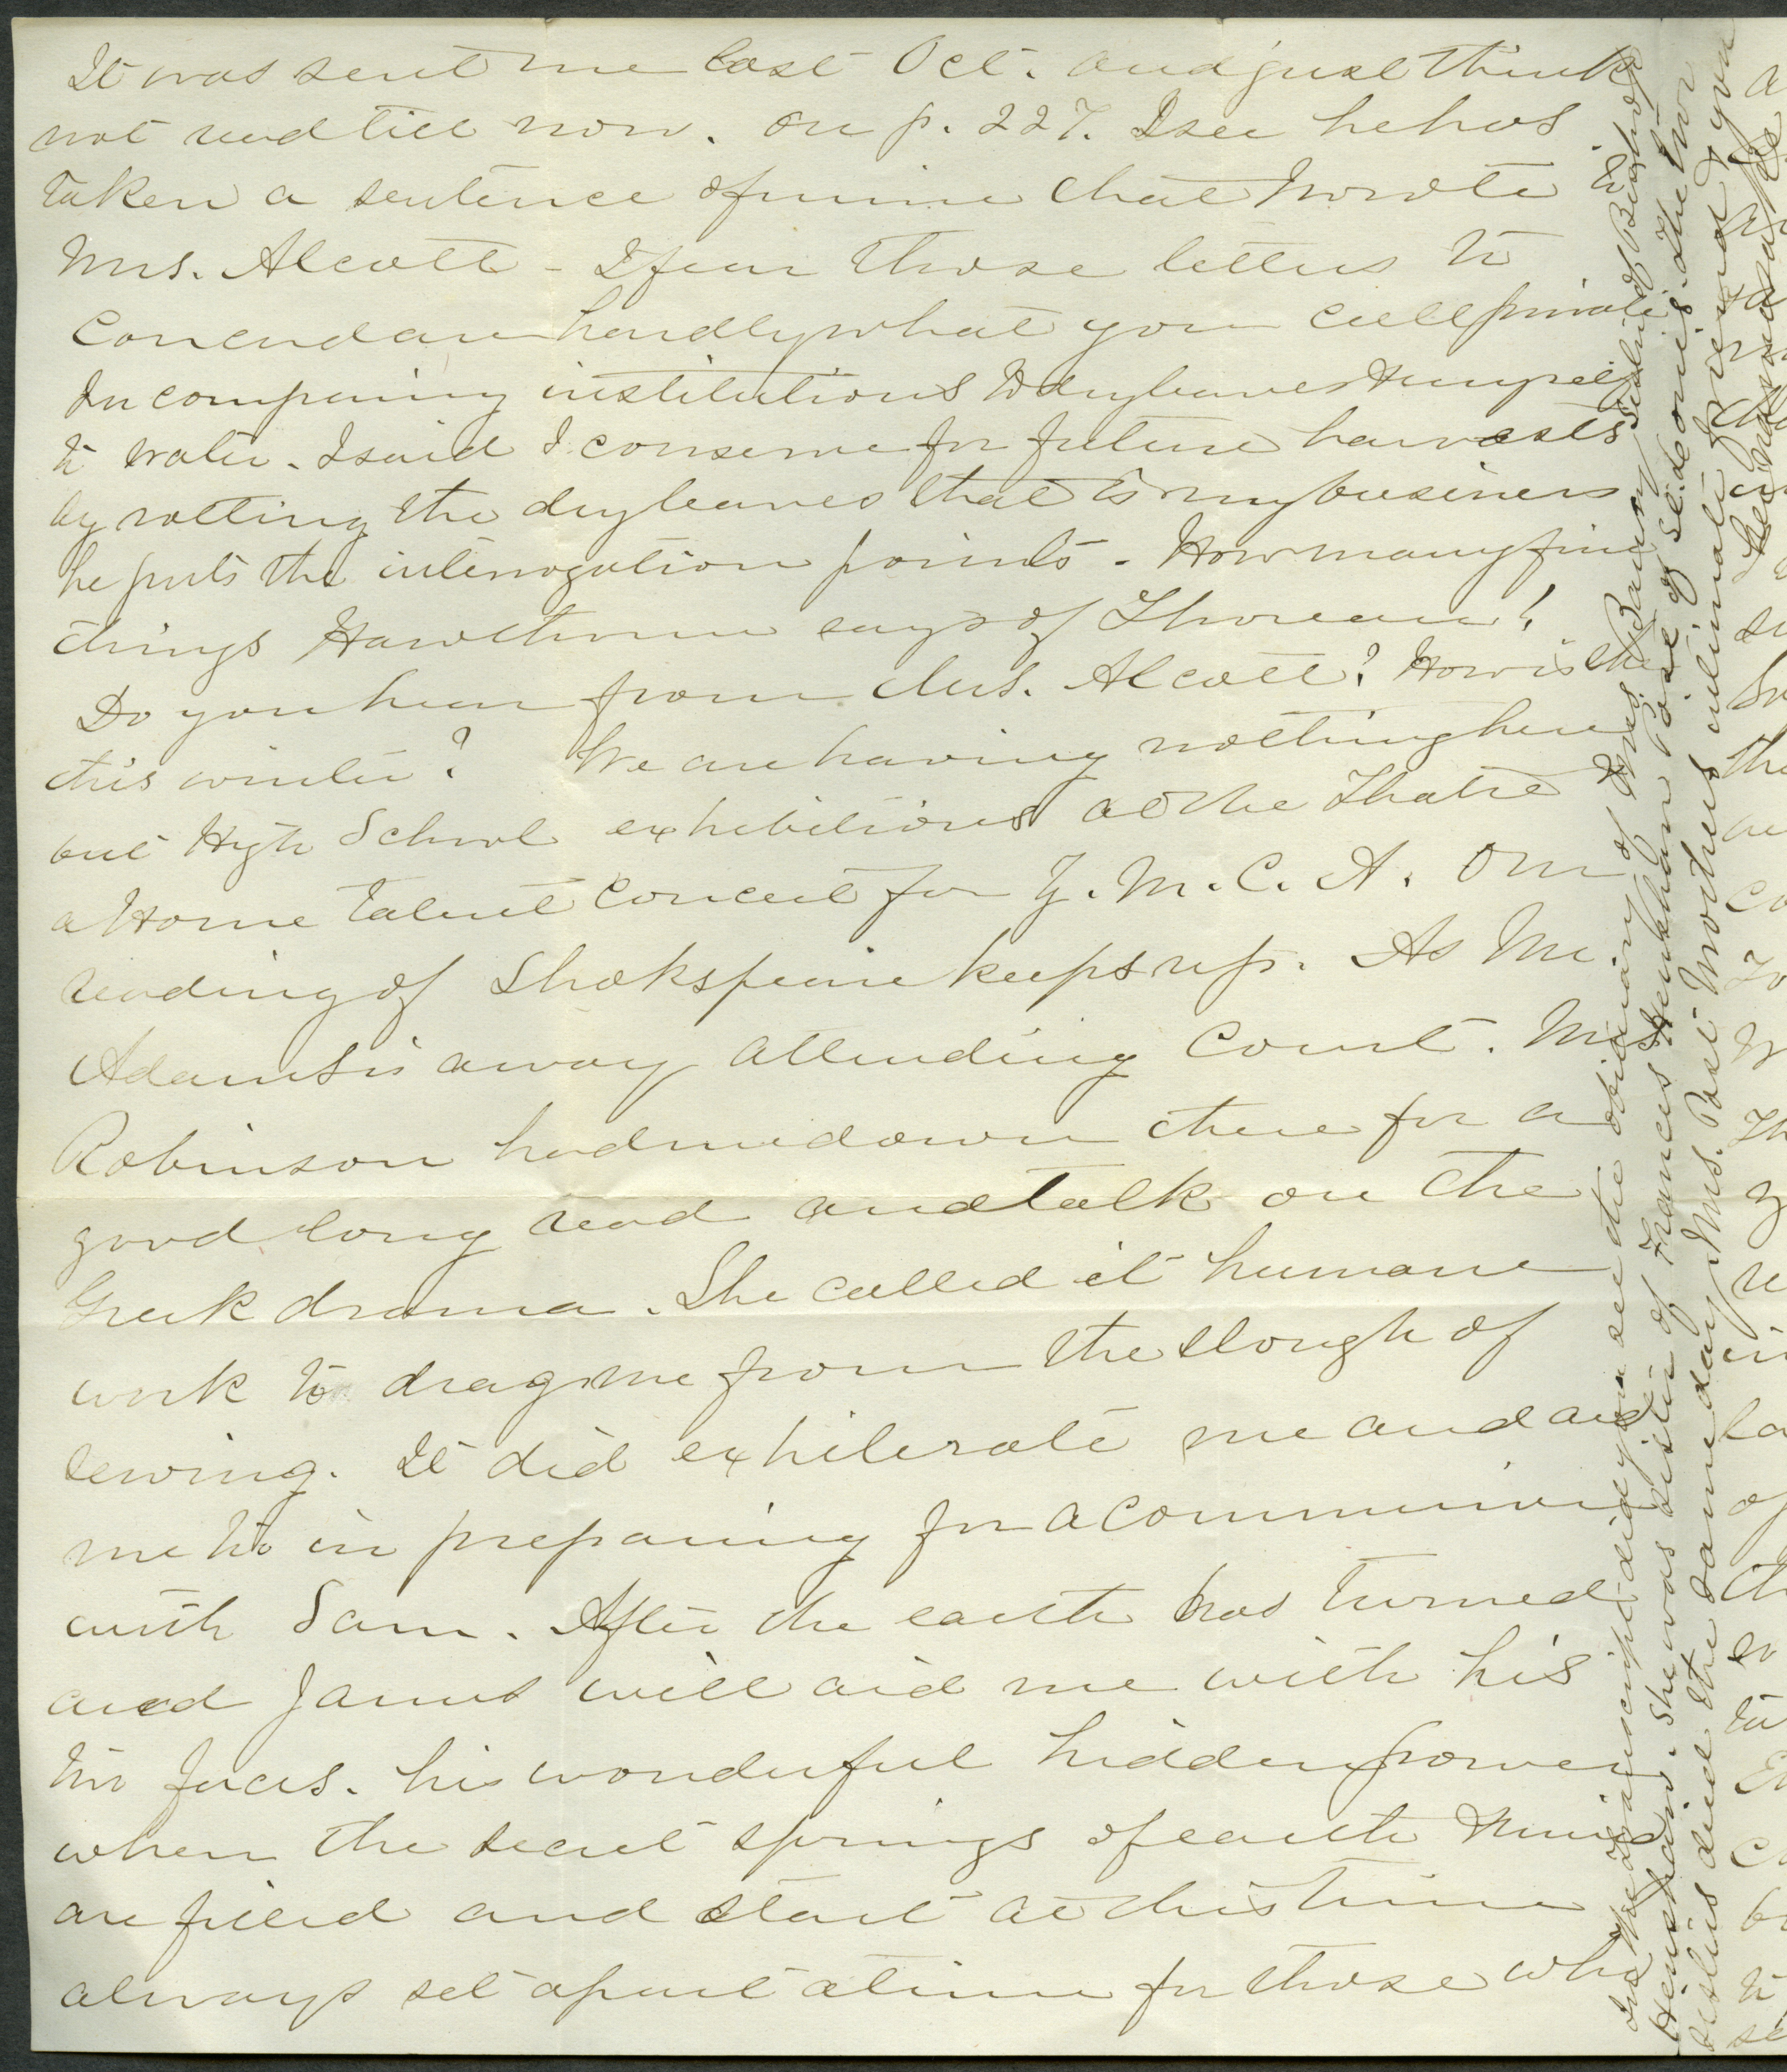 It was sent me last Oct. and just think
not read till now. On p. 227. I see he has
taken a sentence of mine that I wrote to
Mrs. Alcott - I fear those letters to
Concord are hardly what you call private
In comparing institutions to dry leaves & myself
to water. I said I conserve for future harvests
by rotting the dry leaves that is my business
he puts the interrogation points - How many fine
things Hawthorne says of Thoreau!
Do you hear from Mrs. Alcott? How is she
this winter? We are having nothing here
but High School exhibitions at the Theatre
a Home talent concert for Y. M. C. A. Our
reading of Shakspeare keeps up. As Mr.
Adams is away attending Court. Mrs
Robinson had me down there for a
good long read and talk on the
Greek drama. She called it humane
work to drag me from the slough of
sewing. It did exhilerate me and aid
me to in preparing for a communion
with Sam. After the earth has turned
and Janus will aid me with his
two faces. his wonderful hidden power
when the secret springs of earth & mind
are filled and start at this time
always set apart a time for those who
In the Transcript did you see the obituary of Mrs. Barury
Henshaw. She was sister of Frances Henshaw
died the same day Mrs. Post Mother's intimate friend & you